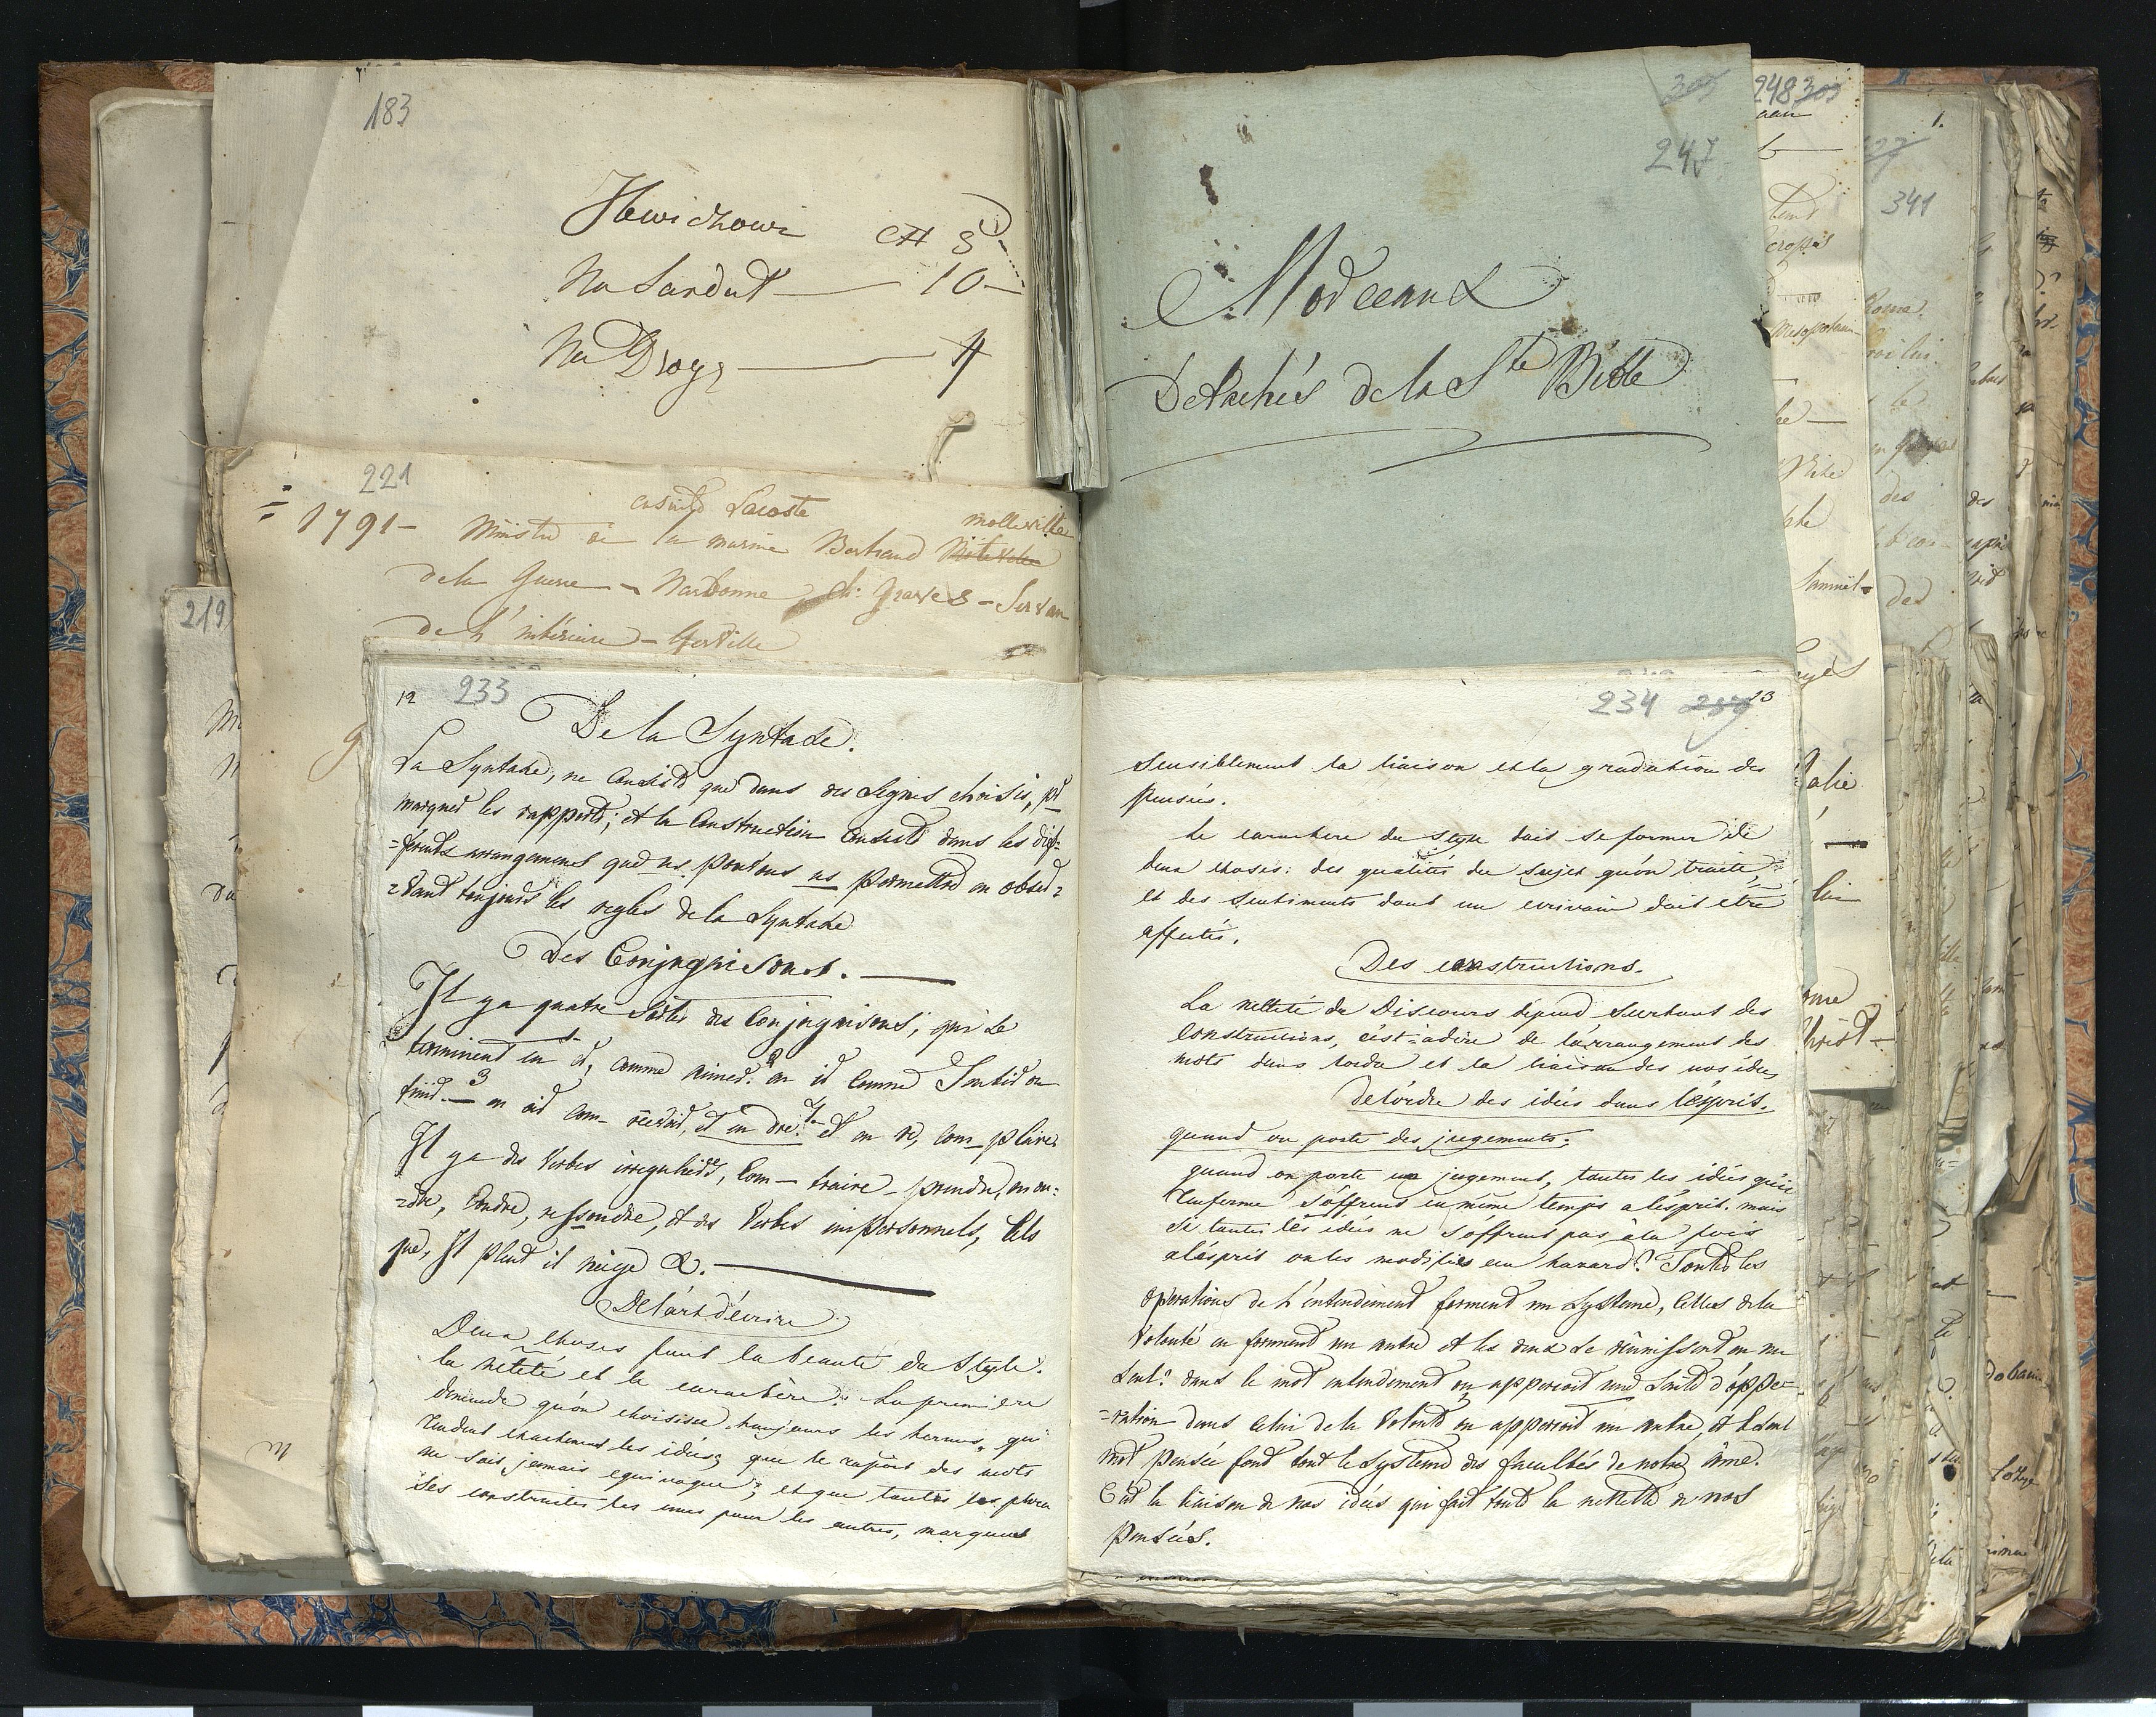 183
Na Sandał — 10 —
Na Drogę — 4
221
1791 — Ministre de la marine Bertrand Molleville
ensuite Lacoste
de la Guerre — Narbonne, de Graves — Servan
de l'intérieure — Gerville
219
305
247
Morceaux
Détachés de la Ste Bible
248 305
341
1.
12 233
De la Syntaxe.
La Syntaxe, ne consiste que dans des signes choisis, pr
marquer les rapports; et la Construction consiste dans les dif-
-férents arrangements que ns pouvons ns permettre en obser=
=vant toujours les regles de la Syntaxe
Des Conjuguaisons. —
Il y a quatre sortes des Conjuguaisons; qui se
terminent en er, comme aimer. 2 en ir comme Sentir ou
finir. — 3 en oir com- recevoir, et en dre. 4 et en re, com- plaire
Il y a des Verbes irreguliers, Com- traire - prendre, mou=
=dre, Coudre, ressoudre, et des Verbes impersonnels, tels
que, Il pleut il neige &. —
De l'art d'écrire
Deux choses font la beauté du Style:
la neteté et le caractère. La premiere
demande qu'on choisisse toujours les termes, qui
rendent exactement les idées; que le raport des mots
ne soit jamais equivoque; et que toutes les phra
ses construites les unes pour les autres, marquent
234 13
sensiblement la liaison et la gradation des
pensées.
Le caractere du style doit se former de
deux choses: des qualités du sujet qu'on traite,
et des sentiments dont un ecrivain doit etre
affectés.
Des constructions.
La netteté du Discours depend surtout des
constructions, c'est-à-dire de l'arrangement des
mots dans lordre et la liaison des nos idées
De l'ordre des idées dans l'esprit,
quand on porte des jugements.
quand on porte un jugement, toutes les idées qu'il
renferme s'offrent en même temps a l'esprit. mais
si toutes les idées ne s'offrent pas à la fois
a l'esprit on les modifies au hazard? Toutes les
opérations de l'entendement forment un Systeme, Celles de la
Volonté en forment un autre et les deux se réunissent en un
seul: dans le mot entendement on apperçoit une suite d'oppe=
=ration dans celui de la Volonté on apperçoit un autre, et le seul
mot pensée fond tout le Systeme des facultés de notre âme.
C'est la liaison de nos idées qui fait toute la netteté de nos
pensées.